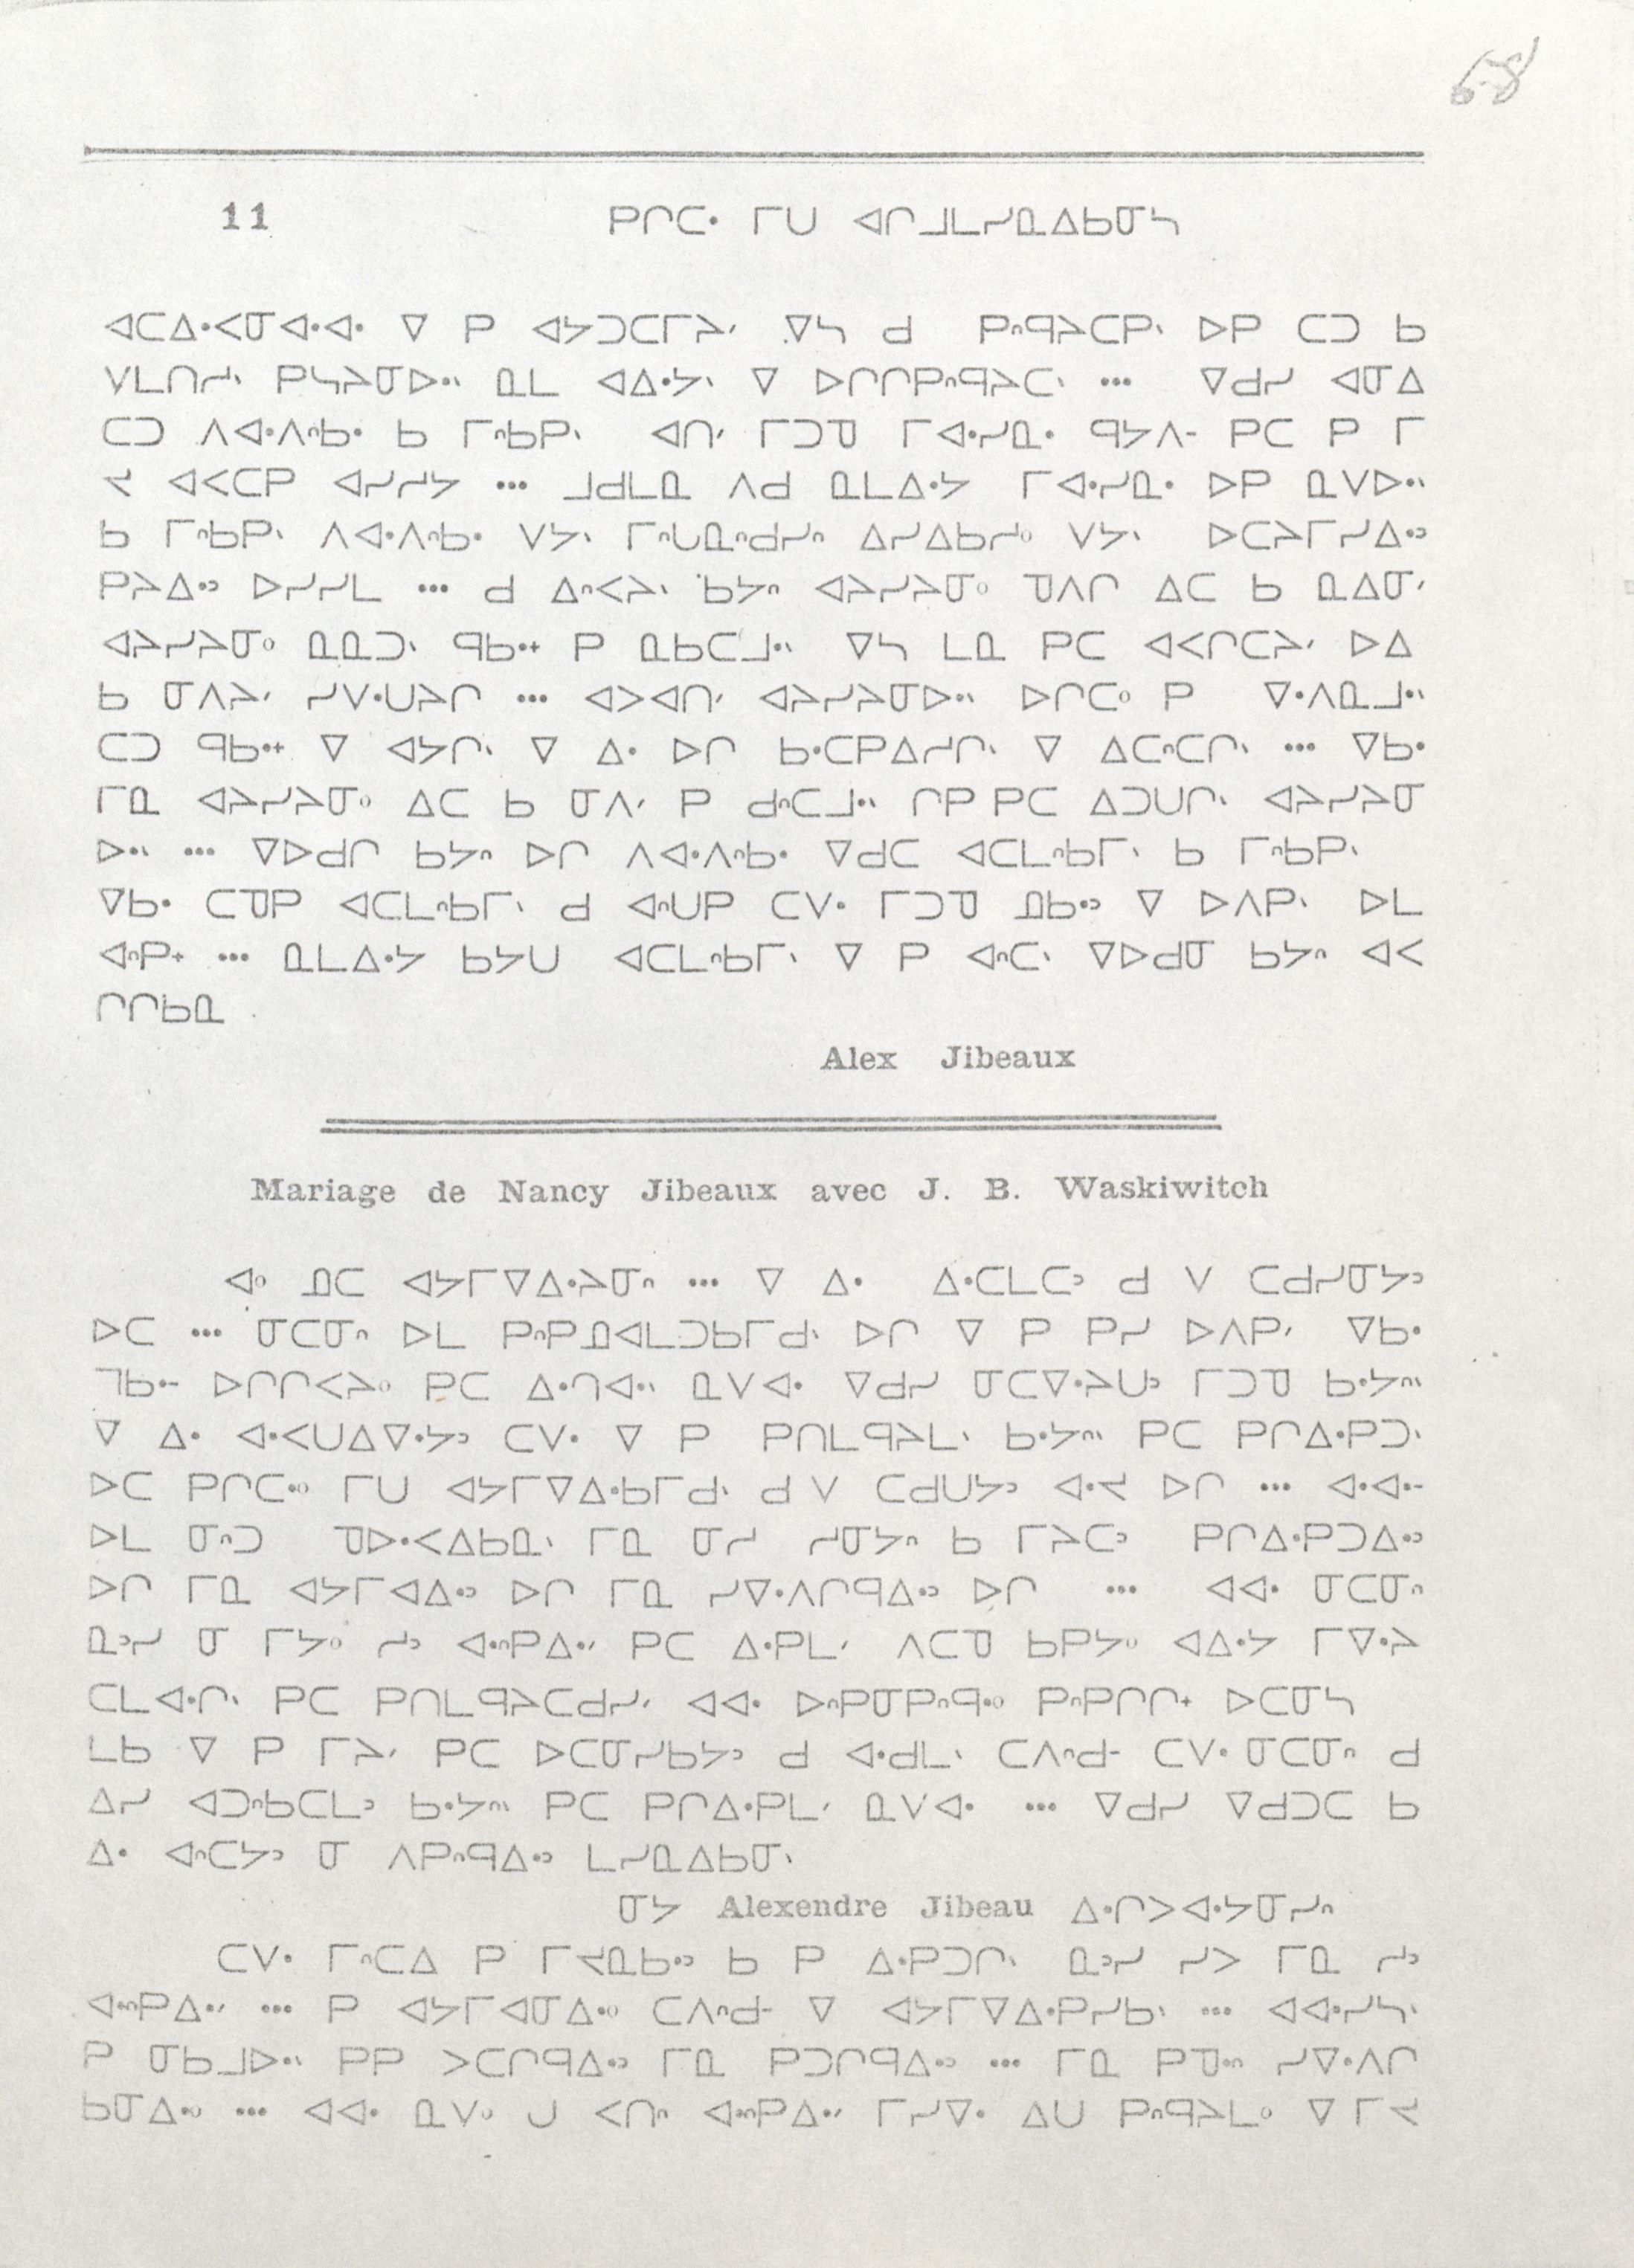 68
11 ᑭᒋᑕᐧ ᒥᑌ ᐊᒋᒧᒪᓯᓇᐃᑲᓂᓴ
ᐊᑕᐃᐧᐸᓂᐊᐧᐊᐧ ᐁ ᑭ ᐊᔭᑐᑕᒥᔨᐟ ᐁᓴ ᑯ ᑭᐢᑫᔨᑕᑭᐠ ᐅᑭ ᑕᑐ ᑲ
ᐯᒪᑎᓯᐠ ᑭᓴᔨᓂᐅᐧᐠ ᓇᒪ ᐊᐃᐧᔭᐠ ᐁ ᐅᒋᒋᑭᐢᑫᔨᑕᐠ ... ᐁᑯᓯ ᐊᓂᐃ
ᑕᑐ ᐱᐊᐧᐱᐢᑲᐧ ᑲ ᒥᐢᑲᑭᐠ ᐊᑎᐟ ᒥᑐᑕ ᒥᐊᐧᓯᓇᐧ ᑫᔭᐱᐨ ᑭᑕ ᑭ ᒥ
ᔪ ᐊᐸᑕᑭ ᐊᓯᓯᔭ ... ᒧᑯᒪᓇ ᐱᑯ ᓇᒪᐃᐧᔭ ᒥᐊᐧᓯᓇᐧ ᐅᑭ ᓇᐯᐅᐧᐠ
ᑲ ᒥᐢᑲᑭᐠ ᐱᐊᐧᐱᐢᑲᐧ ᐯᔭᐠ ᒥᐢᑌᓇᐢᑯᓯᐢ ᐃᓯᐃᑲᓯᐤ ᐯᔭᐠ ᐅᑕᔨᒥᓯᐃᐧᐣ
ᑭᔨᐃᐧᐣ ᐅᓯᓯᒪ ... ᑯ ᐃᐢᐸᔨᐠ ᑲᔭᐢ ᐊᔨᓯᔨᓂᐤ ᑕᐱᒋ ᐃᑕ ᑲ ᓇᐃᓂᐟ
ᐊᔨᓯᔨᓂᐤ ᓇᓇᑐᐠ ᑫᑲᐧᐩ ᑭ ᓇᑲᑕᒧᐧᐠ ᐁᓴ ᒪᓇ ᑭᑕ ᐊᐸᒋᑕᔨᐟ ᐅᐃ
ᑲ ᓂᐱᔨᐟ ᓯᐯᐧᑌᔨᒋ ... ᐊᐳᐊᑎᐟ ᐊᔨᓯᔨᓂᐅᐧᐠ ᐅᒋᑕᐤ ᑭ ᐁᐧᐱᓇᒧᐧᐠ
ᑕᑐ ᑫᑲᐧᐩ ᐁ ᐊᔭᒋᐠ ᐁ ᐃᐧ ᐅᒋ ᑲᐧᑕᑭᐃᓯᒋᐠ ᐁ ᐃᑕᐢᑕᒋᐠ ... ᐁᑲᐧ
ᒥᓇ ᐊᔨᓯᔨᓂᐤ ᐃᑕ ᑲ ᓂᐱᐟ ᑭ ᑯᐢᑕᒧᐧᐠ ᒋᑭ ᑭᑕ ᐃᑐᑌᒋᐠ ᐊᔨᓯᔨᓂ
ᐅᐧᐠ ... ᐁᐅᑯᒋ ᑲᔭᐢ ᐅᒋ ᐱᐊᐧᐱᐢᑲᐧ ᐁᑯᑕ ᐊᑕᒪᐢᑲᒥᐠ ᑲ ᒥᐢᑲᑭᐠ
ᐁᑲᐧ ᑕᑕᑭ ᐊᑕᒪᐢᑲᒥᐠ ᑯ ᐊᐢᑌᑭ ᑕᐯᐧ ᒥᑐᑕ ᓄᑲᐧᐣ ᐁ ᐅᐱᑭᐠ ᐅᒪ
ᐊᐢᑭᐩ ... ᓇᒪᐃᐧᔭ ᑲᔭᑌ ᐊᑕᒪᐢᑲᒥᐠ ᐁ ᑭ ᐊᐢᑕᐠ ᐁᐅᑯᓂ ᑲᔭᐢ ᐊᐸ
ᒋᒋᑲᓇ
Alex Jibeaux
Mariage de Nancy Jibeaux avec J. B. Waskiwitch
ᐊᐤ ᓄᑕ ᐊᔭᒥᐁᐃᐧᔨᓂᐢ ... ᐁ ᐃᐧ ᐃᐧᑕᒪᑕᐣ ᑯ ᐯ ᑕᑯᓯᓂᔭᐣ
ᐅᑕ ... ᓂᑕᓂᐢ ᐅᒪ ᑭᐢᑭᓄᐊᒪᑐᑲᒥᑯᐠ ᐅᒋ ᐁ ᑭ ᑭᓯ ᐅᐱᑭᐟ ᐁᑲᐧ
ᒣᑲᐧᐨ ᐅᒋᒋᐸᔨᐤ ᑭᑕ ᐃᐧᒉᐊᐧᐠ ᓇᐯᐊᐧ ᐁᑯᓯ ᓂᑕᐁᐧᔨᑌᐣ ᒥᑐᑕ ᑲᐧᔭᐢᐠ
ᐁ ᐃᐧ ᐊᐧᐸᑌᐃᐁᐧᔭᐣ ᑕᐯᐧ ᐁ ᑭ ᑭᑎᒪᑫᔨᒪᐠ ᑲᐧᔭᐢᐠ ᑭᑕ ᑭᒋᐃᐧᑭᑐᐠ
ᐅᑕ ᑭᒋᑕᐧᐤ ᒥᑌ ᐊᔭᒥᐁᐃᐧᑲᒥᑯᐠ ᑯ ᐯ ᑕᑯᑌᔭᐣ ᐊᐧᔪ ᐅᒋ ... ᐊᐧᐊᐧᐨ
ᐅᒪ ᓂᐢᑐ ᑕᐅᐧᐸᐃᑲᓇᐠ ᒥᓇ ᓂᓯ ᓯᓂᔭᐢ ᑲ ᒥᔨᑕᐣ ᑭᒋᐃᐧᑭᑐᐃᐧᐣ
ᐅᒋ ᒥᓇ ᐊᔭᒥᐊᐃᐧᐣ ᐅᒋ ᒥᓇ ᓯᐁᐧᐱᒋᑫᐃᐧᐣ ᐅᒋ ... ᐊᐊᐧ ᓂᑕᓂᐢ
ᓇᐣᓯ ᓂ ᒥᔭᐤ ᓯᐣ ᐊᐧᐢᑭᐃᐧᐟ ᑭᑕ ᐃᐧᑭᒪᐟ ᐱᑕᑕ ᑲᑭᔭᐤ ᐊᐃᐧᔭ ᒥᐁᐧᔨ
ᑕᒪᐊᐧᒋᐠ ᑭᑕ ᑭᑎᒪᑫᔨᑕᑯᓯᐟ ᐊᐊᐧ ᐅᐢᑭᓂᑭᐢᑫᐧᐤ ᑭᐢᑭᒋᒋᐩ ᐅᑕᓂᓴ
ᒪᑲ ᐁ ᑭ ᒥᔨᐟ ᑭᑕ ᐅᑕᓂᓯᑲᔭᐣ ᑯ ᐊᐧᑯᒪᐠ ᑕᐱᐢᑯᐨ ᑕᐯᐧ ᓂᑕᓂᐢ ᑯ
ᐃᓯ ᐊᑐᐢᑲᑕᒪᐣ ᑲᐧᔭᐢᐠ ᑭᑕ ᑭᒋᐃᐧᑭᒪᐟ ᓇᐯᐊᐧ ... ᐁᑯᓯ ᐁᑯᑐᑕ ᑲ
ᐃᐧ ᐊᐢᑕᔭᐣ ᓂ ᐱᑭᐢᑫᐃᐧᐣ ᒪᓯᓇᐃᑲᓂᐠ
ᓂᔭ Alexendre Jibeau ᐃᐧᒋᐳᐊᐧᔭᓂᓯᐢ
ᑕᐯᐧ ᒥᐢᑕᐃ ᑭ ᒥᔪᓇᑲᐧᐣ ᑲ ᑭ ᐃᐧᑭᑐᒋᐠ ᓇᐣᓯ ᓯᐳ ᒥᓇ ᓯᐣ
ᐊᐧᐢᑭᐃᐧᐟ ... ᑭ ᐊᔭᒥᐊᓂᐃᐧᐤ ᑕᐱᐢᑯᐨ ᐁ ᐊᔭᒥᐁᐃᐧᑭᓯᑲᐠ ... ᐊᐊᐧᓯᓴᐠ
ᑭ ᓂᑲᒧᐅᐧᐠ ᑭᑭ ᐳᑕᒋᑫᐃᐧᐣ ᒥᓇ ᑭᑐᒋᑫᐃᐧᐣ ... ᒥᓇ ᑭᑕᐧᒼ ᓯᐁᐧᐱᒋ
ᑲᓂᐃᐧᐤ ... ᐊᐊᐧ ᓇᐯᐤ ᑌ ᐸᑎᐢ ᐊᐧᐢᑭᐃᐧᐟ ᒥᓯᐁᐧ ᐃᑌ ᑭᐢᑫᔨᒪᐤ ᐁ ᒥᔪ